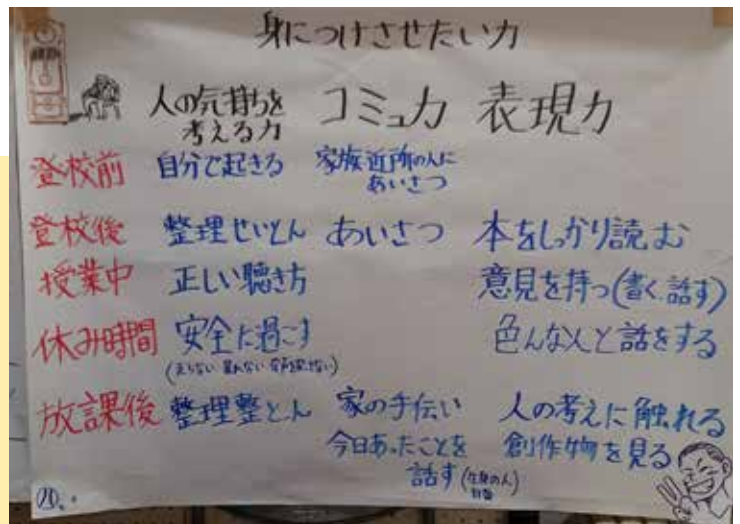 身につけさせたい力
人の気持ちを
考える力
コミュ力
表現力
登校前
自分で起きる
家族近所の人に
あいさつ
登校後
整理せいとん
あいさつ
本をしっかり読む
授業中
正しい聴き方
意見を持つ(書く、話す)
休み時間
安全に過ごす
色んな人と話をする
放課後
整理整とん
家の手伝い
人の考えに触れる
今日あったことを
創作物を見る
話す